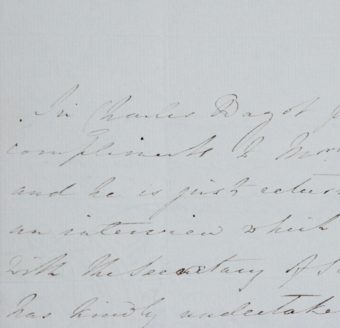 Sir Charles Bagot
compliments to
and he is just return
an interview which
with the Secretary of
has kindly undertake